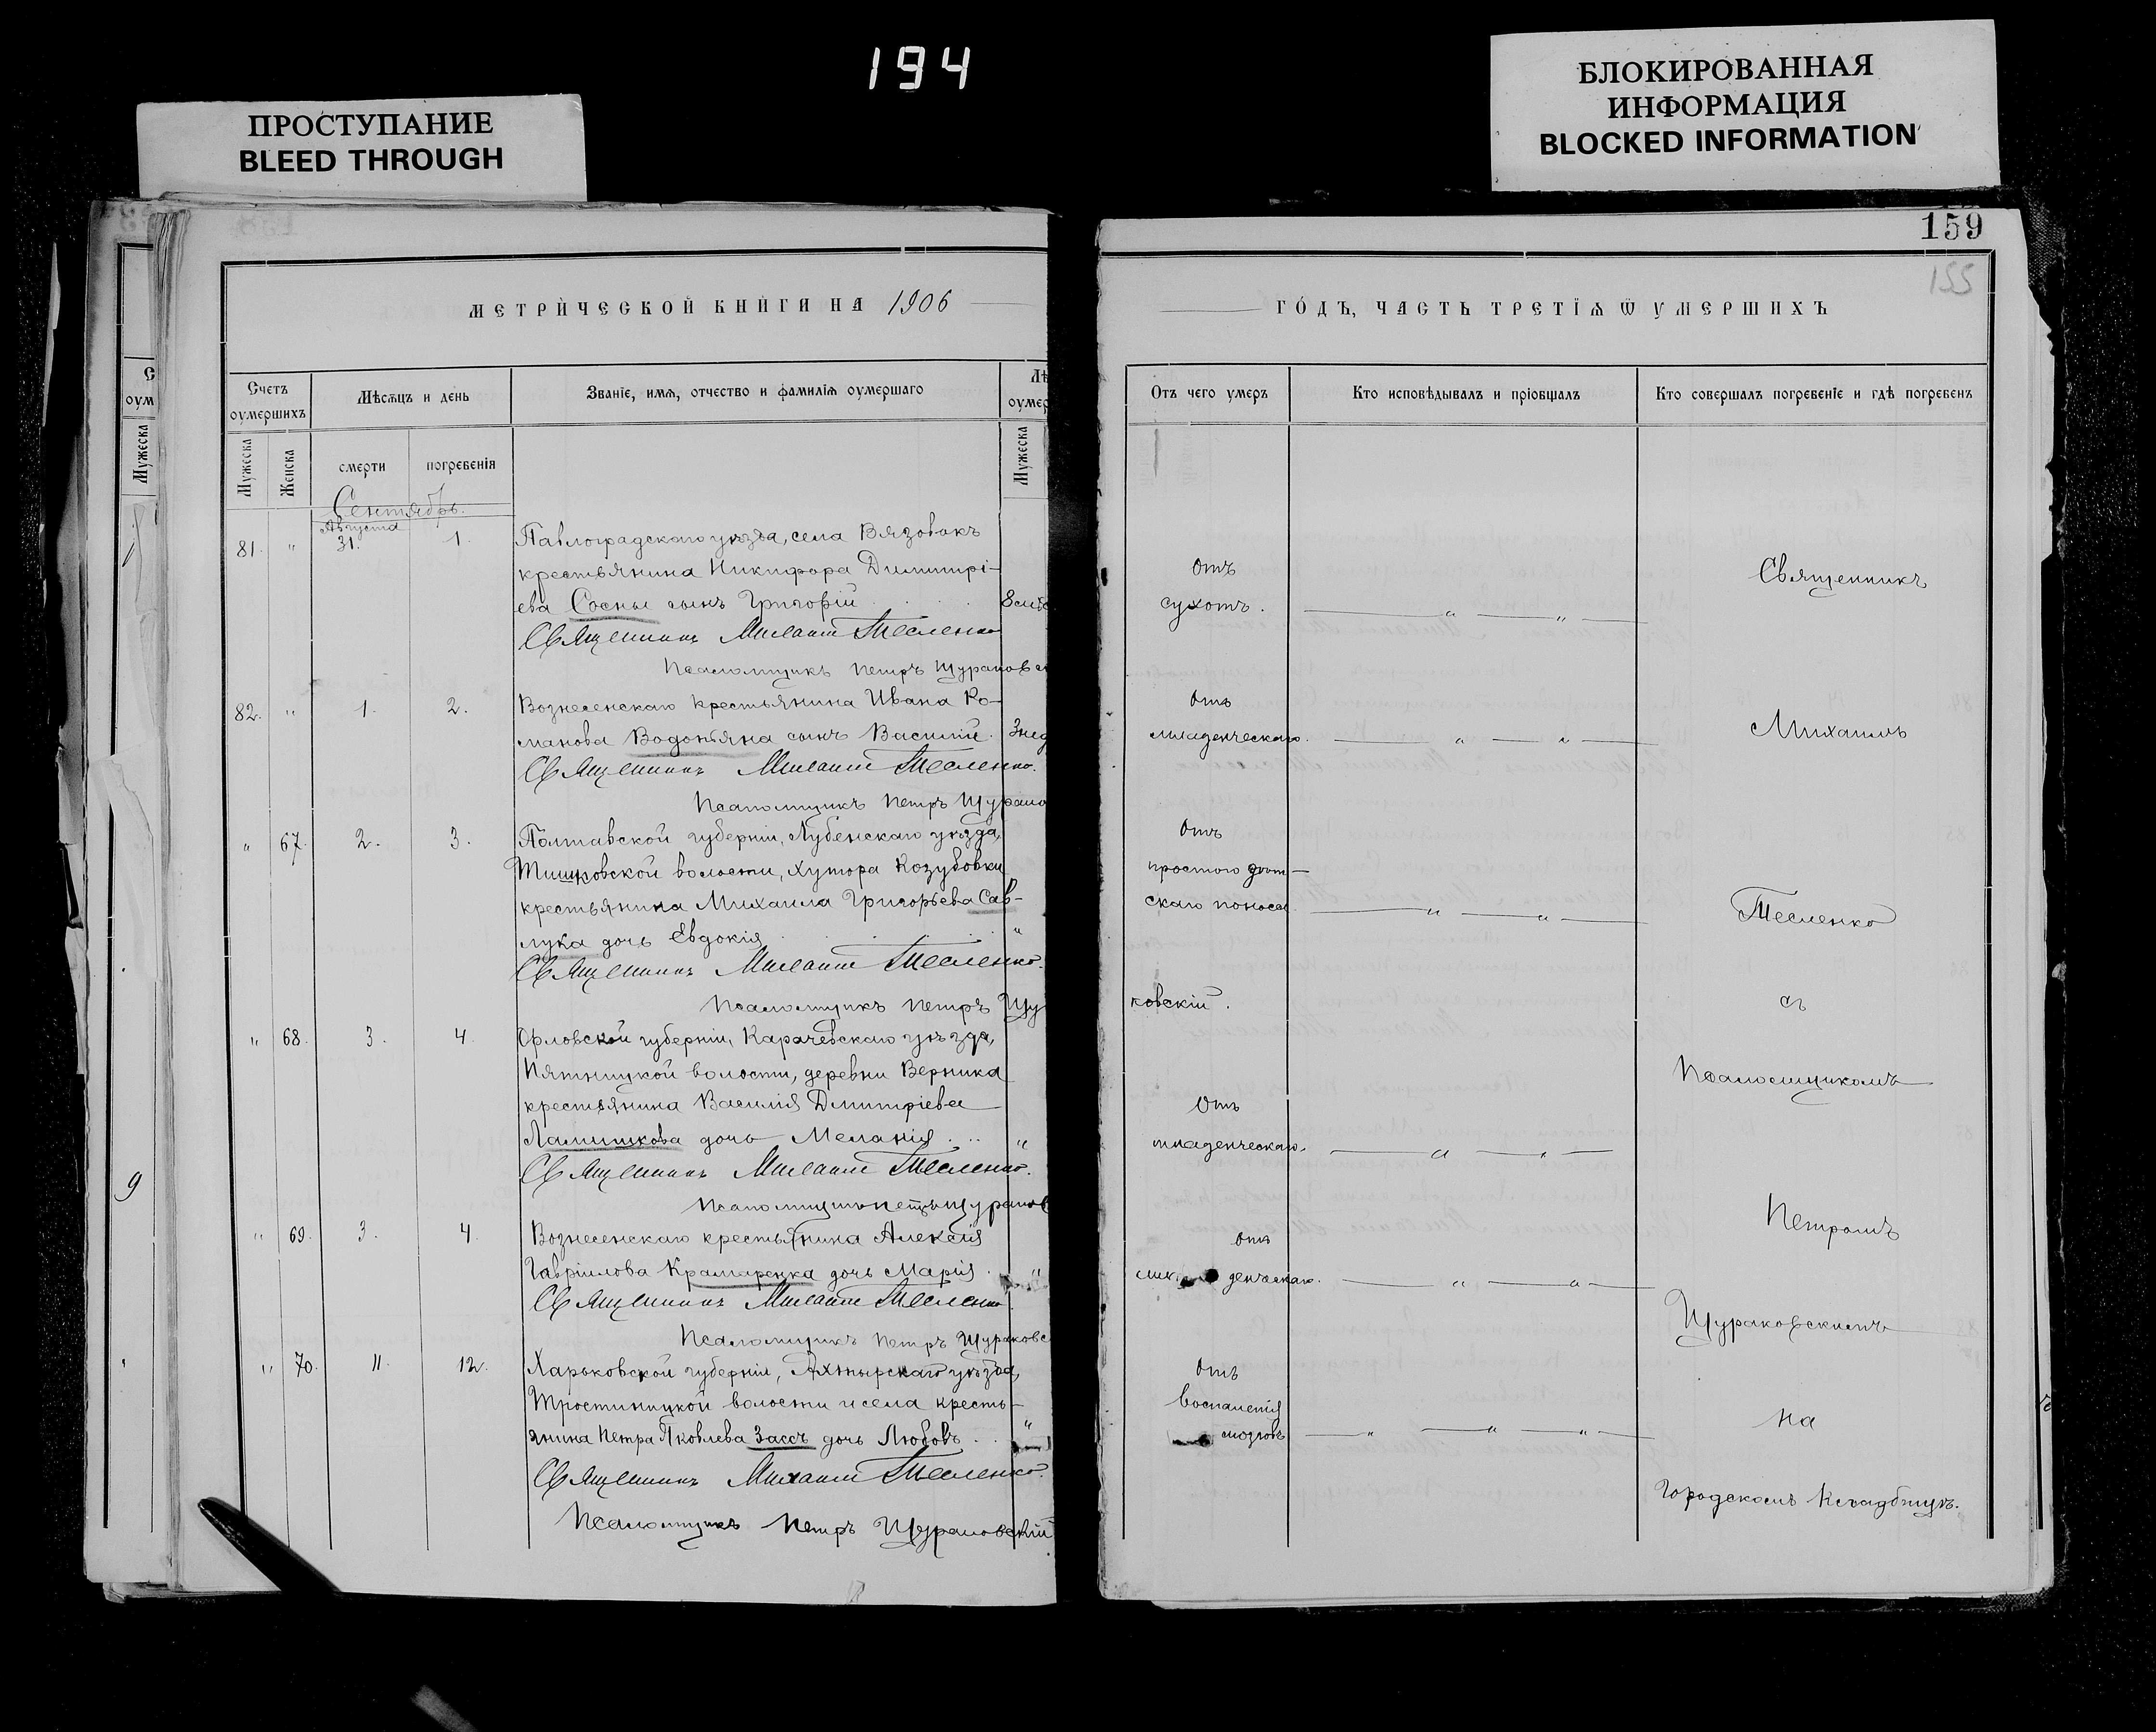 194
ПРОСТУПАНИЕ
BLEED THROUGH
БЛОКИРОВАННАЯ
ИНФОРМАЦИЯ
BLOCKED INFORMATION
159
155
МЕТРИЧЕСКОЙ КНИГИ НА 1906
Счетъ оумершихъ
Мѣсяцъ и день
Званіе, имя, отчество и фамилія оумершаго
Мужеска
Женска
смерти
погребенія
Мужеска
Сентябрь.
Августа
81. " 31. 1. Павлоградскаго уѣзда, села Вязовокъ
крестьянина Никифора Димитрі-
ева Сосны сынъ Григорій
Священникъ Михаилъ Тесленко
Псаломщикъ Петръ Щураковс
82. " 1. 2. Вознесенскаго крестьянина Ивана Ро-
манова Водопьяна сынъ Василій. 3 нед
Священникъ Михаилъ Тесленко.
Псаломщикъ Петръ Щурако
" 67. 2. 3. Полтавской губерніи, Лубенскаго уѣзда,
Тишковской волости, хутора Козубовки
крестьянина Михаила Григорьева Сав-
лука дочь Евдокія "
Священникъ Михаилъ Тесленко.
Псаломщикъ Петръ Щу
" 68. 3. 4. Орловской губерніи, Карачевскаго уѣзда,
Пятницкой волости, деревни Верника
крестьянина Василія Дмитріева
Ламишкова дочь Меланія "
Священникъ Михаилъ Тесленко.
Псаломщикъ Петръ Щураков
" 69. 3. 4. Вознесенскаго крестьянина Алексія
Гавріилова Крамаренка дочь Марія "
Священникъ Михаилъ Тесленко.
Псаломщикъ Петръ Щураковс
" 70. 11. 12. Харьковской губерніи, Ахтырскаго уѣзда,
Тростяницкой волости и села кресть-
янина Петра Яковлева Зассъ дочь Любовь "
Священникъ Михаилъ Тесленко.
Псаломщикъ Петръ Щураковскій
ГОДЪ, ЧАСТЬ ТРЕТІЯ Ѿ УМЕРШИХЪ
Отъ чего умеръ
Кто исповѣдывалъ и пріобщалъ
Кто совершалъ погребеніе и гдѣ погребенъ
Отъ
сухотъ. " "
Отъ
младенческаго. " "
Отъ
простого дѣт-
скаго поноса " "
ковскій.
Отъ
младенческаго. " "
Отъ
денческаго. " "
Отъ
воспаленія
мозговъ " " "
Священникъ
Михаилъ
Тесленко
съ
Псаломщикомъ
Петромъ
Щураковскимъ
на
Городскомъ Кладбищѣ.
9